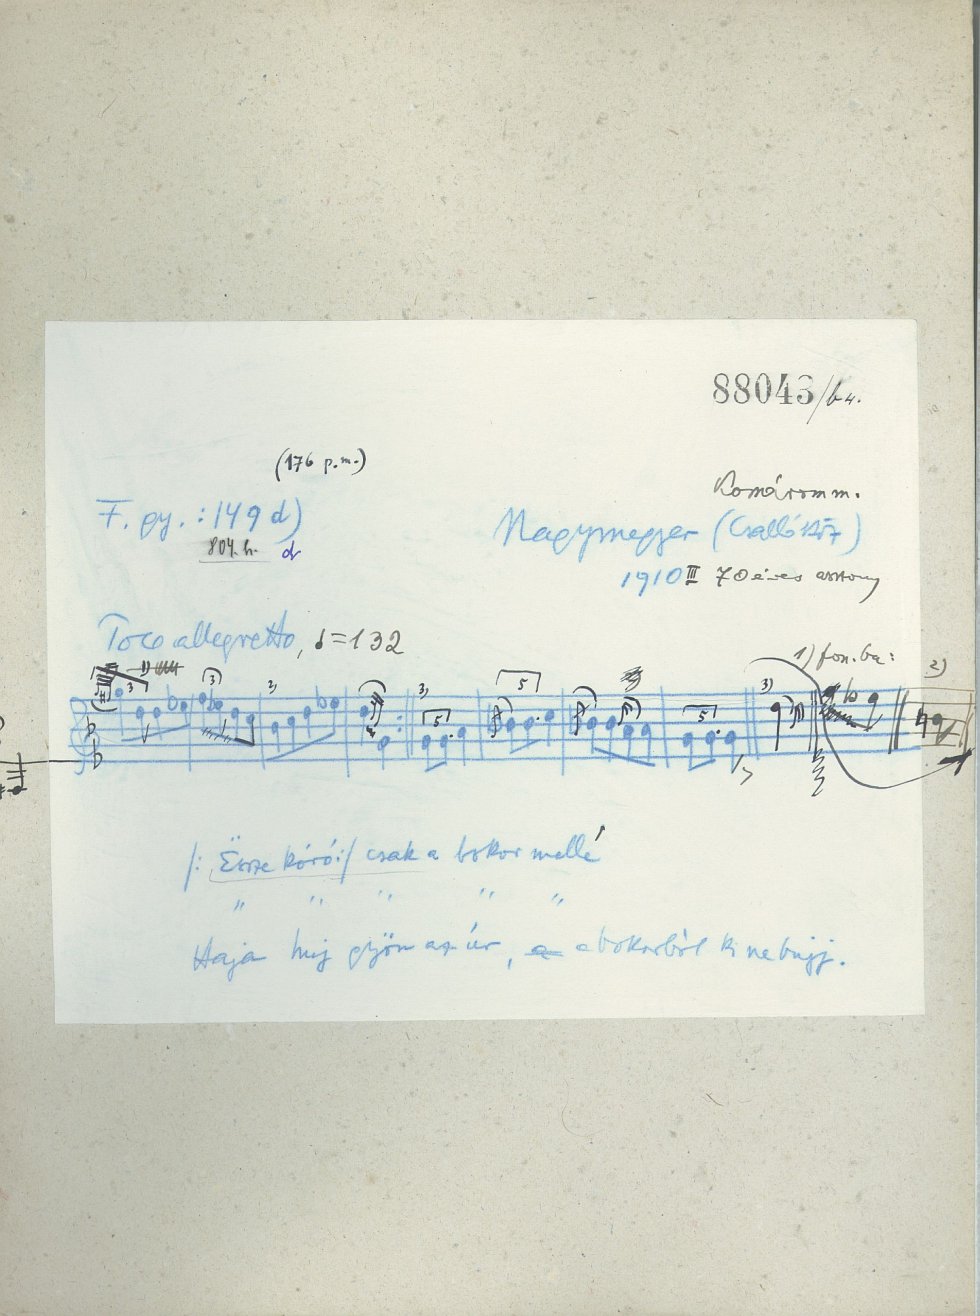 88043/b4.
(176 p.m.)
Komárom m.
F. gy.: 149 d)
Nagymegyer (Csallóköz)
804. h. d
1910 III 70 éves asszony
Poco allegretto, ♩=132
1) fon. ba: 2)
3 1) 3 2) 3) 5 5 5 3)
/: Össze kóró :/ csak a bokor mellé
" " " " "
Haja huj gyön az úr, a bokorból ki ne bujj.